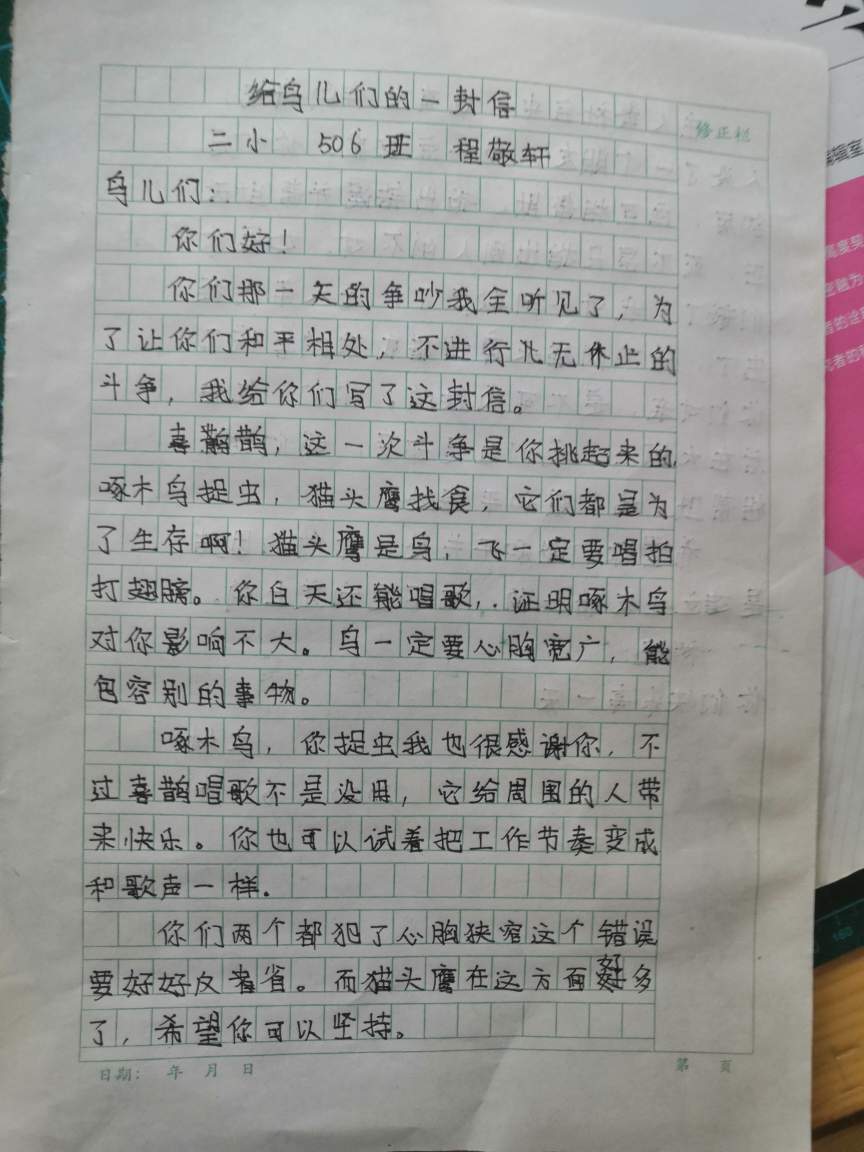 给鸟儿们的一封信
修正栏
二小 506班 程敬轩
鸟儿们：
你们好！
你们那一天的争吵我全听见了，为
了让你们和平相处，不进行儿无休止的
斗争，我给你们写了这封信。
喜鹊，这一次斗争是你挑起来的，
啄木鸟捉虫，猫头鹰找食，它们都是为
了生存啊！猫头鹰是鸟，飞一定要唱拍
打翅膀。你白天还能唱歌，证明啄木鸟
对你影响不大。鸟一定要心胸宽广，能
包容别的事物。
啄木鸟，你捉虫我也很感谢你，不
过喜鹊唱歌不是没用，它给周围的人带
来快乐。你也可以试着把工作节奏变成
和歌声一样.
你们两个都犯了心胸狭窄这个错误
要好好反省。而猫头鹰在这方面好多
了，希望你可以坚持。
日期： 年 月 日
第 页
辑室